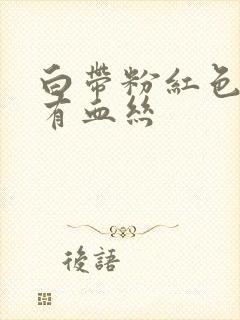 白帶粉紅色
有血絲
後語